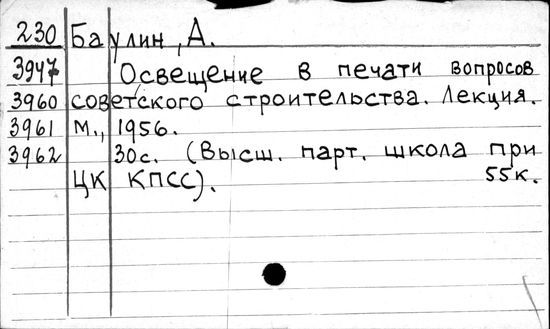 230 Баулин, А.
3947 Освещение в печати вопросов
3960 советского строительства. Лекция.
3961 М., 1956.
3962 30с. (Высш. парт. школа при
ЦК КПСС). 55к.